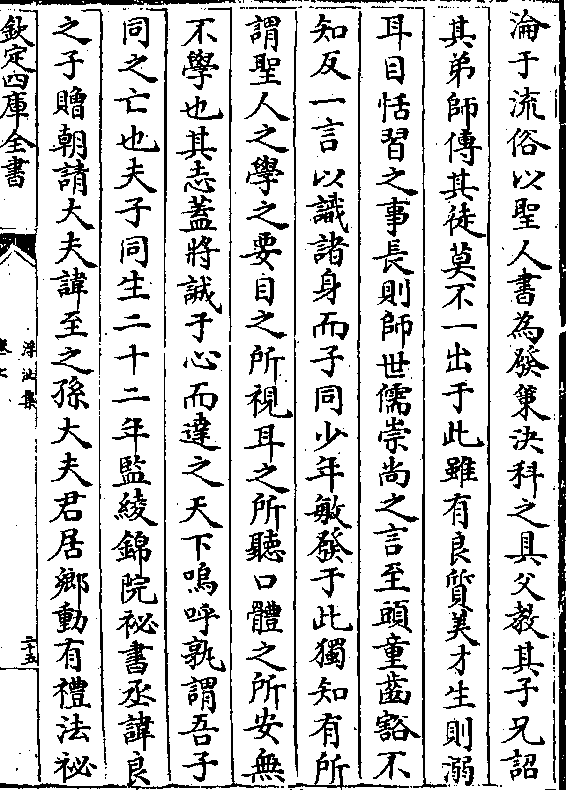 淪于流俗以聖人書為發䇿決科之具父教其子兄詔
其弟師傳其徒莫不一出于此雖有良質美才生則溺
耳目恬習之事長則師世儒崇尚之言至頭童齒豁不
知反一言以識諸身而子同少年敏發于此獨知有所
謂聖人之學之要目之所視耳之所聽口體之所安無
不學也其志蓋將誠于心而達之天下嗚呼孰謂吾子
同之亡也夫子同生二十二年監綾錦院祕書丞諱良
之子贈朝請大夫諱至之孫大夫君居鄉動有禮法祕
欽定四庫全書
浮沚集
卷七
二十五